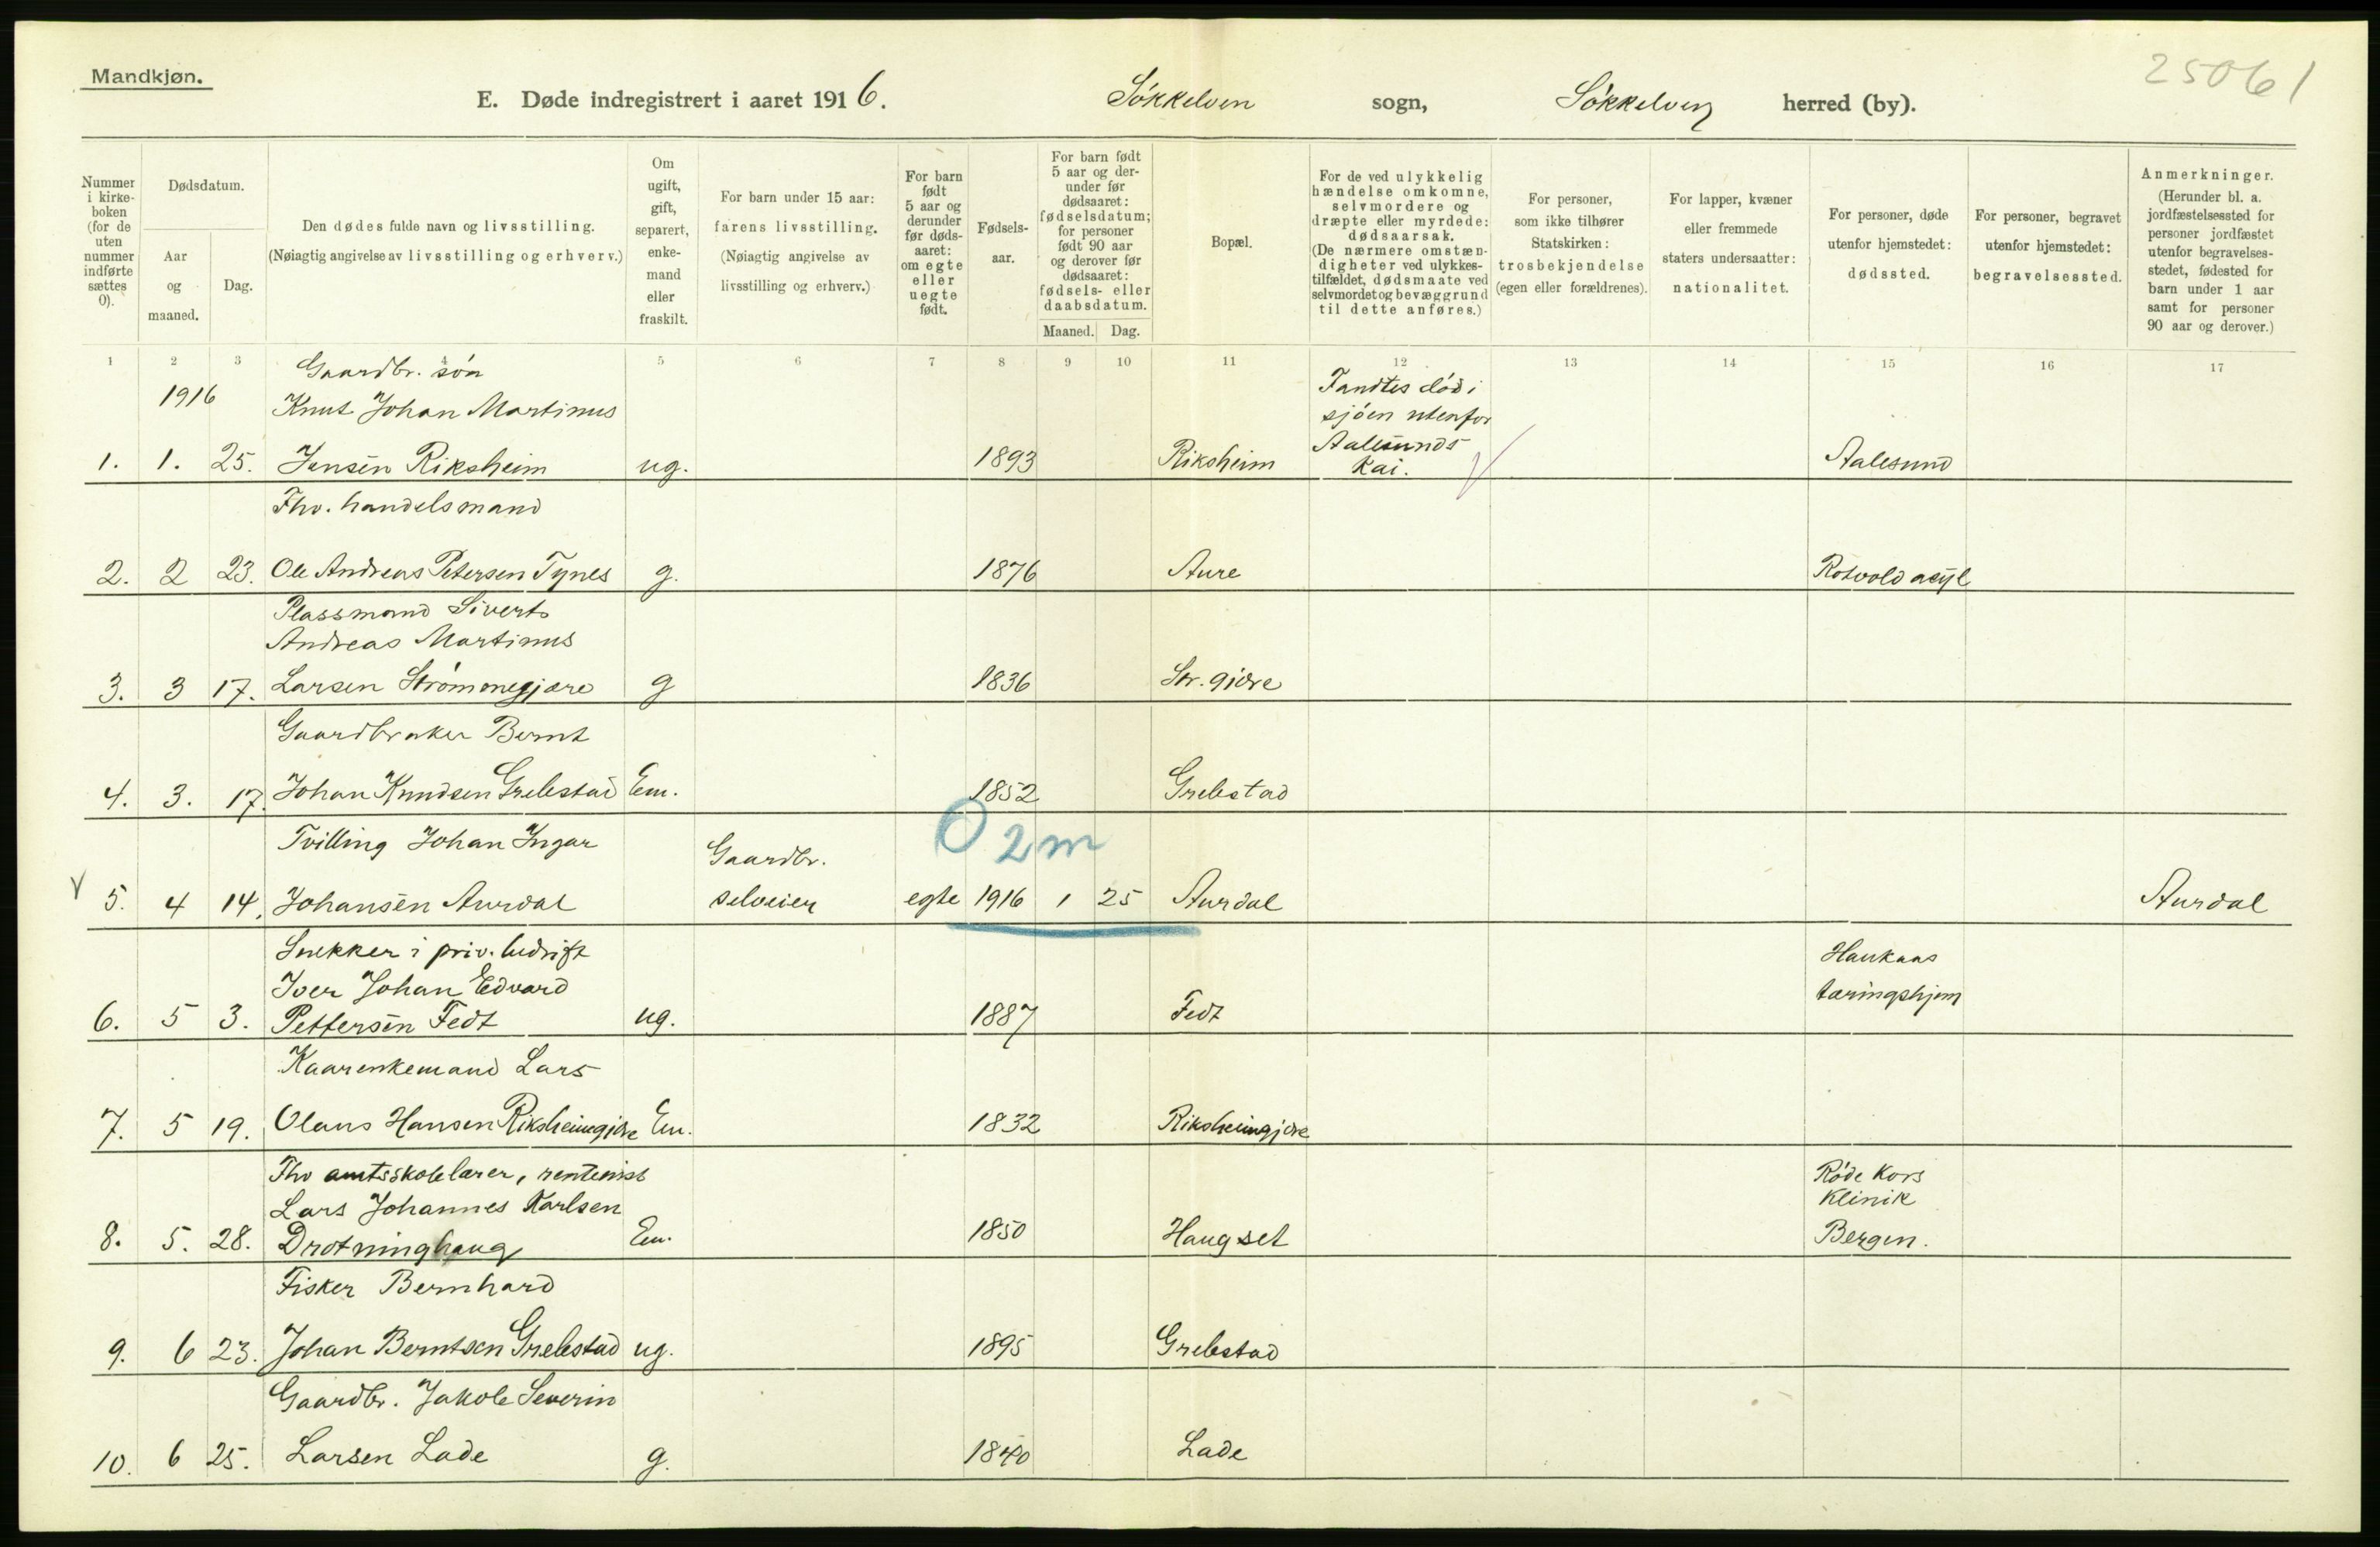 Mandkjøn.
25061
E. Døde indregistrert i aaret 1916. Søkkelven sogn, Søkkelven herred (by).
Nummer i kirkeboken (for de uten nummer indførte sættes 0).
Dødsdatum.
Aar og maaned.
Dag.
Den dødes fulde navn og livsstilling.
(Nøiagtig angivelse av livsstilling og erhverv.)
Om ugift, gift, separert, enkemand eller fraskilt.
For barn under 15 aar: farens livsstilling.
(Nøiagtig angivelse av livsstilling og erhverv.)
For barn født 5 aar og derunder før dødsaaret: om egte eller uegte født.
Fødselsaar.
For barn født 5 aar og derunder før dødsaaret: fødselsdatum; for personer født 90 aar og derover før dødsaaret: fødsels- eller daabsdatum.
Maaned. Dag.
Bopæl.
For de ved ulykkelig hændelse omkomne, selvmordere og dræpte eller myrdede: dødsaarsak.
(De nærmere omstændigheter ved ulykkestilfældet, dødsmaate ved selvmordet og bevæggrund til dette anføres.)
For personer, som ikke tilhører Statskirken: trosbekjendelse (egen eller forældrenes).
For lapper, kvæner eller fremmede staters undersaatter: nationalitet.
For personer, døde utenfor hjemstedet: dødssted.
For personer, begravet utenfor hjemstedet: begravelsessted.
Anmerkninger.
(Herunder bl. a. jordfæstelsessted for personer jordfæstet utenfor begravelsesstedet, fødested for barn under 1 aar samt for personer 90 aar og derover.)
1 2 3 4 5 6 7 8 9 10 11 12 13 14 15 16 17
Gaardbr. søn
1916 Knut Johan Martinus
1. 1. 25. Jensen Riksheim ug. 1893 Riksheim
Fandtes død i
sjøen utenfor
Aalesunds
Kai.
Aalesund
Fhv. handelsmand
2. 2 23. Ole Andreas Petersen Tynes g. 1876 Aure Rotvold asyl
Plassmand Siverts
Andreas Martinus
3. 3 17. Larsen Strømmegjære g 1836 Str. gjære
Gaardbruker Bernt
4. 3. 17. Johan Knudsen Grebstad Em. 1852 Grebstad
O 2 m
Tvilling Johan Ingar Gaardbr.
V 5. 4 14. Johansen Aurdal selveier egte 1916 1 25 Aurdal Aurdal
Snekker i priv. bedrift Haukaas
Iver Johan Edvard tæringshjem
6. 5 3. Pettersen Fedt ug. 1887 Fedt
Kaarenkemand Lars
7. 5 19. Olaus Hansen Riksheimgjære Em. 1832 Riksheimgjære
Fhv amtsskolelærer, rentenist Røde Kors
Lars Johannes Karlsen Klinik
8. 5. 28. Drotninghaug Em. 1850 Haugset Bergen.
Fisker Bernhard
9. 6 23. Johan Berntsen Grebstad ug. 1895 Grebstad
Gaardbr. Jakob Severin
10. 6 25. Larsen Lade g. 1840 Lade